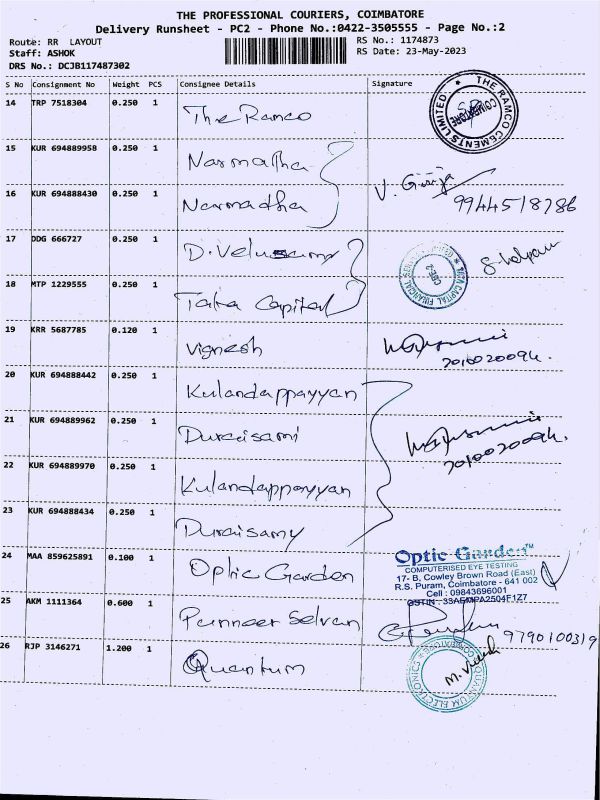 THE PROFESSIONAL COURIERS, COIMBATORE
Delivery Runsheet - PC2 - Phone No.:0422-3505555 - Page No.:2
Route: RR LAYOUT
RS No.: 1174873
Staff: ASHOK
RS Date: 23-May-2023
DRS No.: DCJB117487302
S No Consignment No Weight PCS Consignee Details Signature
14 TRP 7518304 0.250 1 The Ramco
THE RAMCO CEMENTS LIMITED COIMBATORE
15 KUR 694889958 0.250 1 Narmatha
16 KUR 694888430 0.250 1 Narmadha
V. Girija
9944518786
17 DDG 666727 0.250 1 D. Velusamy
TATA CAPITAL FINANCIAL
CBE-2
18 MTP 1229555 0.250 1 Tata Capital
19 KRR 5687785 0.120 1 Vignesh
20 KUR 694888442 0.250 1 Kulandappayyan
21 KUR 694889962 0.250 1 Duraisami
22 KUR 694889970 0.250 1 Kulandappayyan
23 KUR 694888434 0.250 1 Duraisamy
24 MAA 859625891 0.100 1 Optic Garden
Optic Garden™
COMPUTERISED EYE TESTING
17- B, Cowley Brown Road (East)
R.S. Puram, Coimbatore - 641 002
Cell : 09843696001
GSTIN : 33AEMPA2504F1Z7
25 AKM 1111364 0.600 1 Panneer Selvan
9790100319
26 RJP 3146271 1.200 1 Quantum
QUANTUM ELECTRONICS COIMBATORE